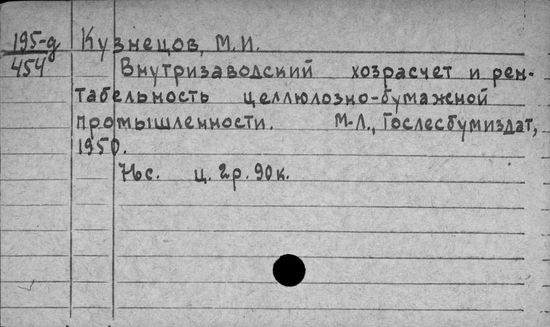 195-д Кузнецов, М.И.
454
Внутризаводский хозрасчет и рен-
табельность целлюлозно-бумажной
промышленности. М-Л., Гослесбумиздат,
1950.
с. ц. 2р. 90к.